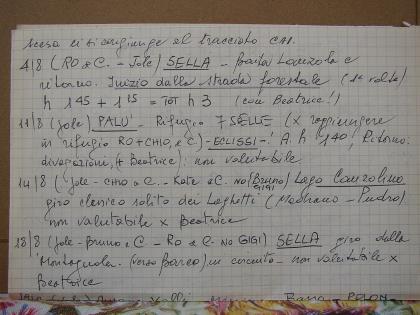 scesa ci si congiunge al tracciato CAI.
4/8 (RO e C. - Jole) SELLA - baita Lanzola e
ritorno. Inizio dalla strada forestale (1a volta)
h 1 45 + 1 15 = TOT h 3 (con Beatrice!)
11/8 (Jole) PALU' - Rifugio 7 SELLE (x raggiungere
in rifugio RO + CHIO, e C.) - ECLISSI -! A. h 1 40', Ritorno:
divagazioni, (+ Beatrice): non valutabile
14/8 (Jole - CHIO e C. - Kate e C. NO (BRUNO) GIGI) Lago Canzolino
giro classico solito dei Laghetti (Madrano - Pudro)
non valutabile x Beatrice
18/8 (Jole - Bruno e C - RO e C - NO GIGI) SELLA giro della
Montagnola (verso Barco) in circuito - non valutabile x
Beatrice